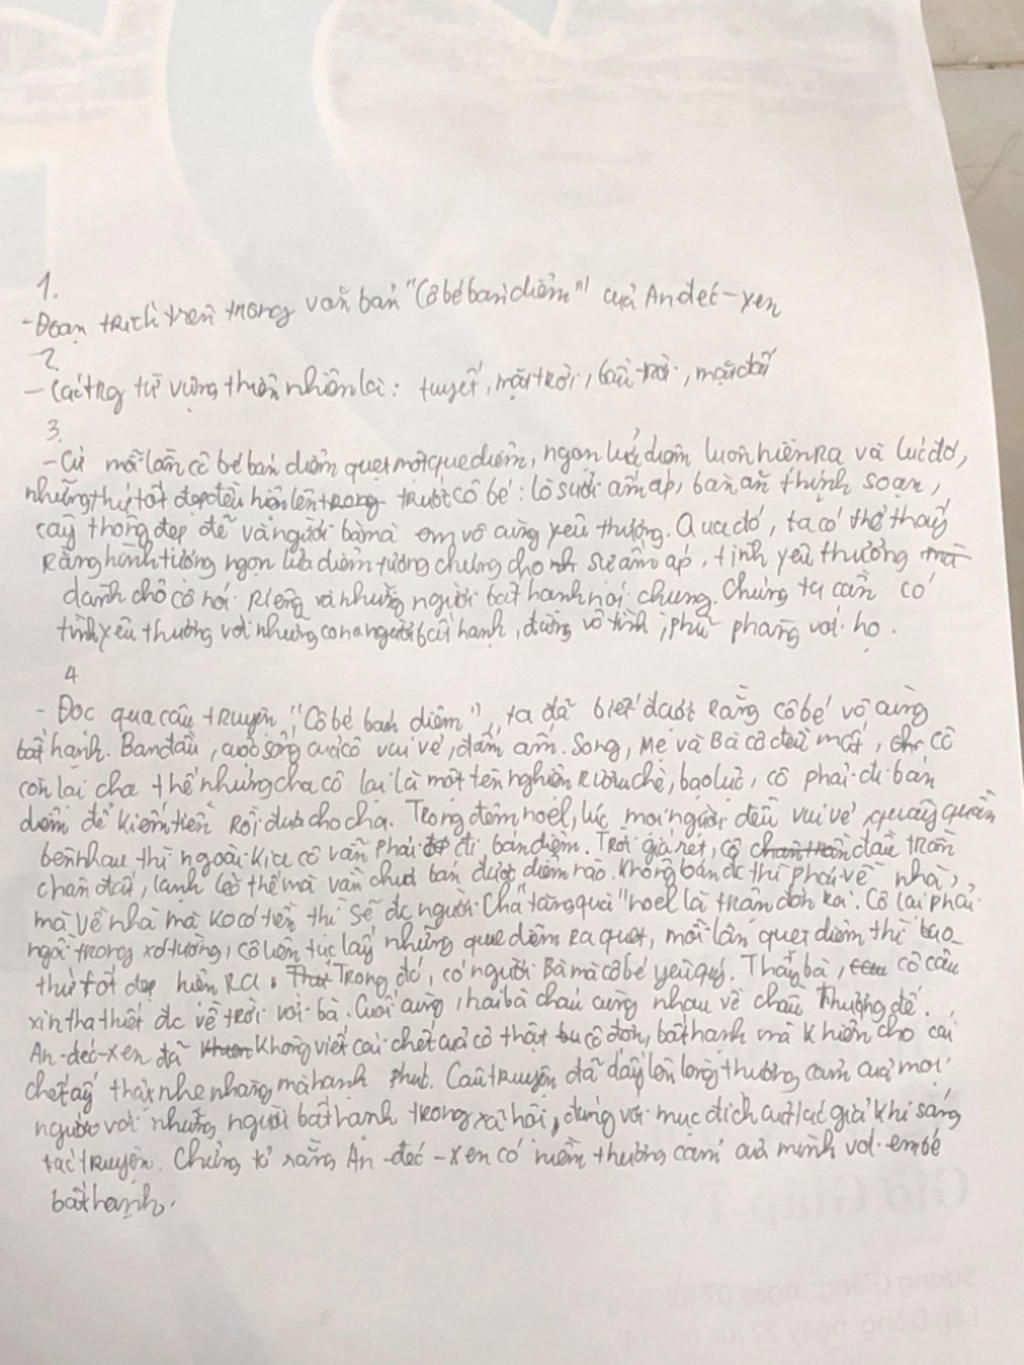 1.
-Đoạn trích trên trong văn bản "Cô bé bán diêm" của Anđéc-xen
2
- Các trg từ vựng thiên nhiên là: tuyết, mặt trời, bầu trời, mặt đất
3.
-Cứ mỗi lần cô bé bán diêm quẹt một que diêm, ngọn lửa diêm luôn hiện ra và lúc đó,
những thứ tốt đẹp đều hiện lên trước cô bé: lò sưởi ấm áp, bàn ăn thịnh soạn,
cây thông đẹp đẽ và người bà mà em vô cùng yêu thương. Qua đó, ta có thể thấy
rằng hình tượng ngọn lửa diêm tượng chưng cho sự ấm áp, tình yêu thương
dành chô cô nói riêng và những người bất hạnh nói chung. Chúng ta cần có
tình yêu thương với những con người bất hạnh, đừng vô tình, phũ phàng với họ.
4
- Đọc qua câu truyện "Cô bé bán diêm", ta đã biết được rằng cô bé vô cùng
bất hạnh. Ban đầu, cuộc sống của cô vui vẻ, đầm ấm. Song, Mẹ và Bà cô đều mất, cô
còn lại cha thế nhưng cha cô lại là một tên nghiện rượu chè, bạo lực, cô phải đi bán
diêm để kiếm tiền rồi đưa cho cha. Trong đêm noel, lúc mọi người đều vui vẻ, quây quần
bên nhau thì ngoài kia cô vẫn phải đi bán diêm. Trời giá rét, cô đầu trần
chân đất, lạnh lẽo thế mà vẫn chưa bán được diêm nào. Không bán đc thì phải về nhà,
mà về nhà mà ko có tiền thì sẽ đc người Cha "tặng quà" noel là trận đòn roi. Cô lại phải
ngồi trong xó tường, cô liên tục lấy những que diêm ra quẹt, mỗi lần quẹt diêm thì bao
thứ tốt đẹp hiện ra. Trong đó, có người Bà mà cô bé yêu quý. Thấy bà, cô cầu
xin tha thiết đc về trời với bà. Cuối cùng, hai bà cháu cùng nhau về chầu Thượng đế.
An-đéc-xen đã không viết cái chết của cô thật cô đơn, bất hạnh mà khiến cho cái
chết ấy thật nhẹ nhàng mà hạnh phúc. Câu truyện đã dấy lên lòng thương cảm của mọi
người với những người bất hạnh trong xã hội, đúng với mục đích của tác giả khi sáng
tác truyện. Chứng tỏ rằng An-đéc-xen có niềm thương cảm của mình với em bé
bất hạnh.